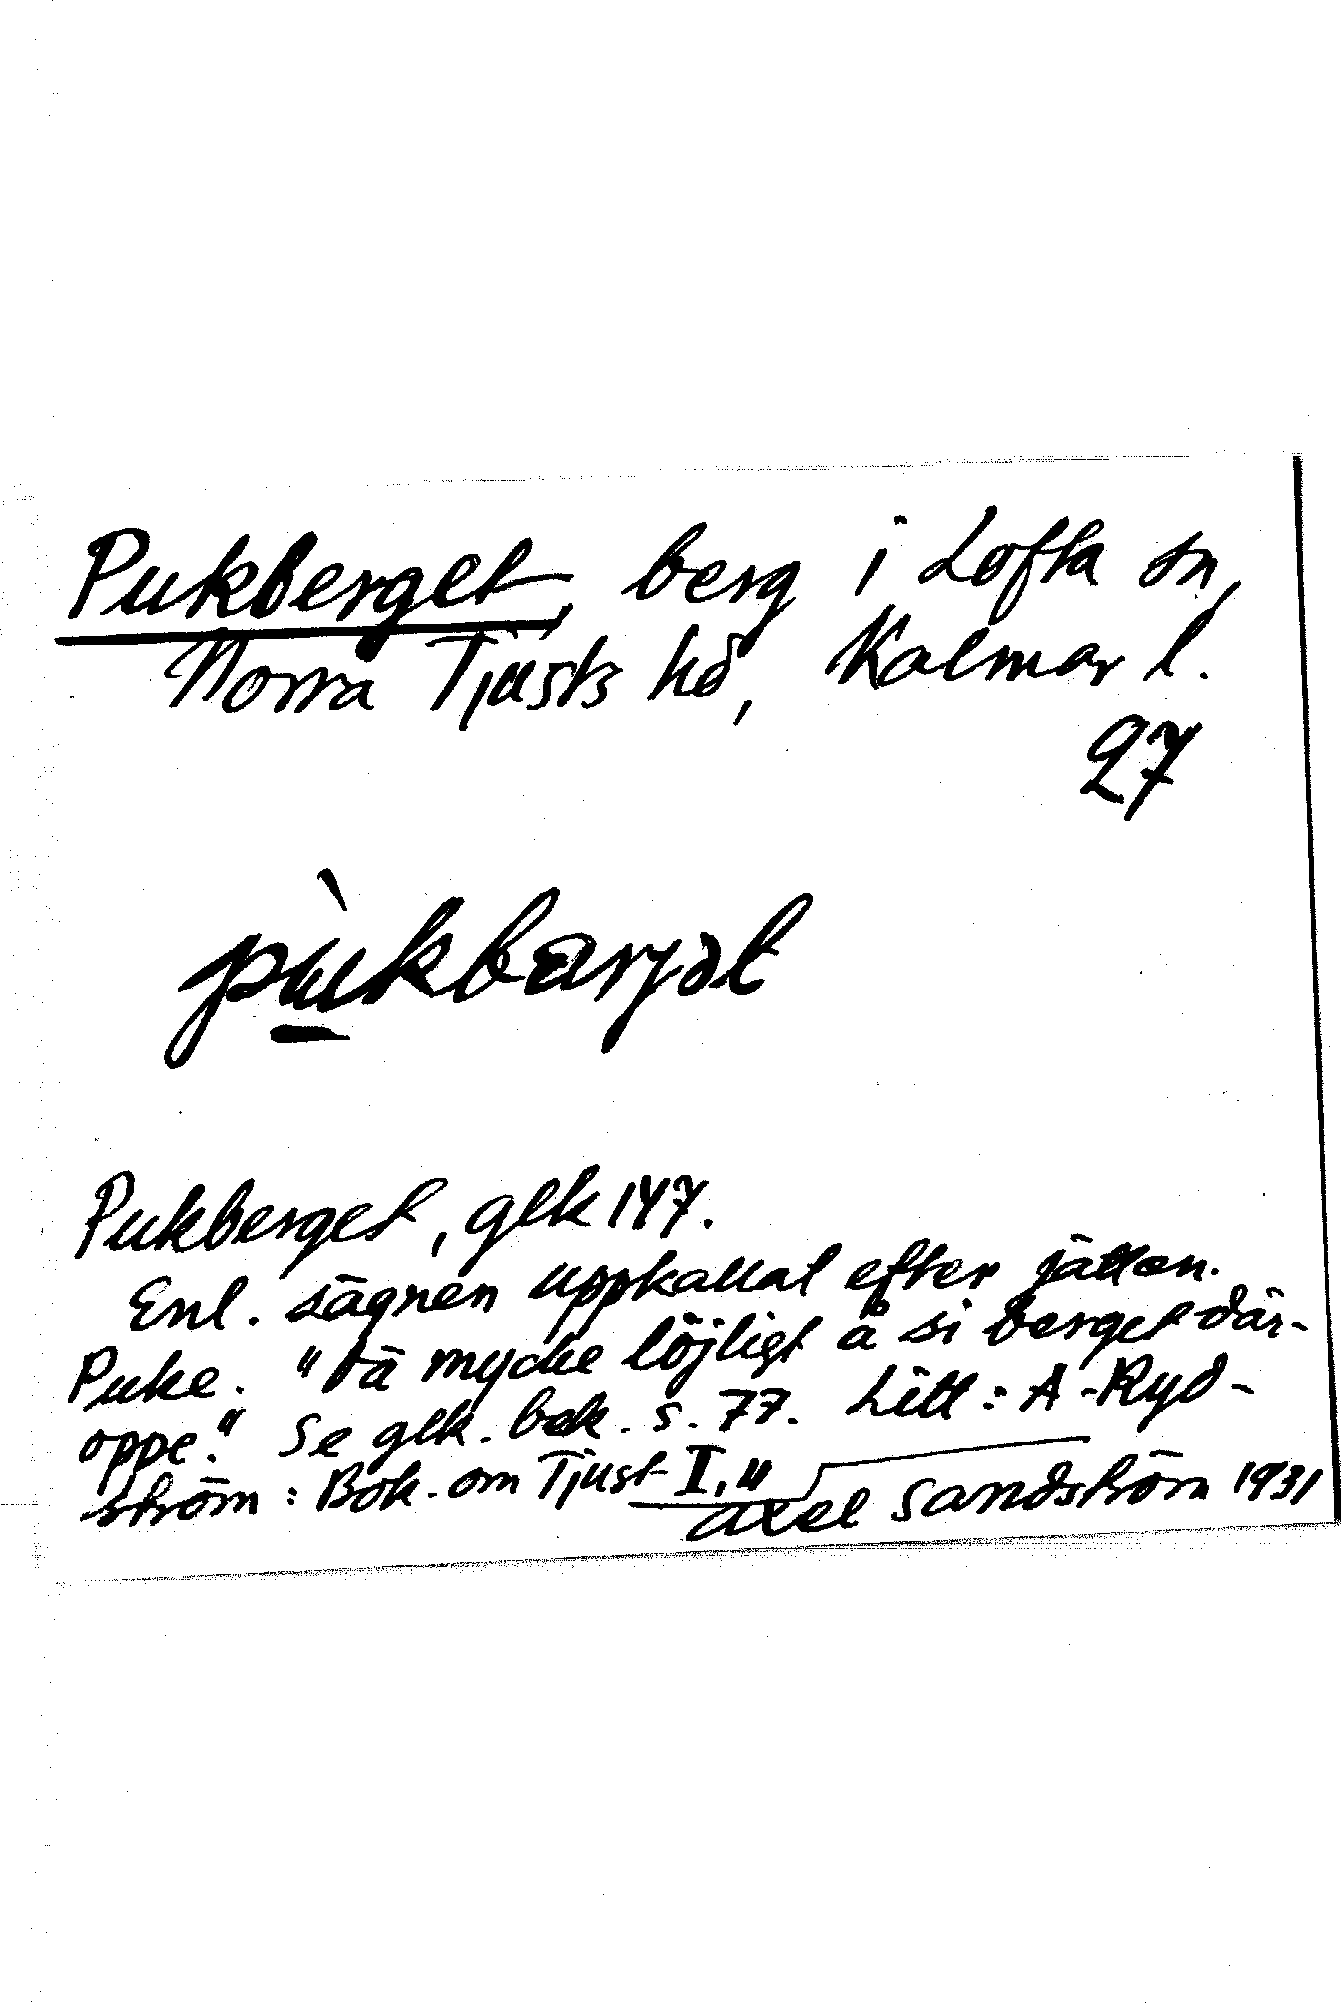 Pukberget, berg i Lofta sn,
Norra Tjusts hd, Kalmar l.
27
pùkbarjət
Pukberget, glk 147.
Enl. sägnen uppkallat efter jätten.
Puke. "Dä mycke löjligt å si berget där-
oppe." Se glk. bok. s. 77. Litt: A. Ryd-
ström: Bok. om Tjust I, 4
Axel Sandström 1931